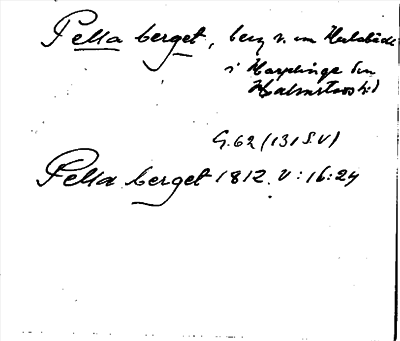 Pella berget, berg v. om Hulabäck
i Harplinge sn
Halmstads hd
G.62 (131 S.V)
Pella berget 1812. V:16:24